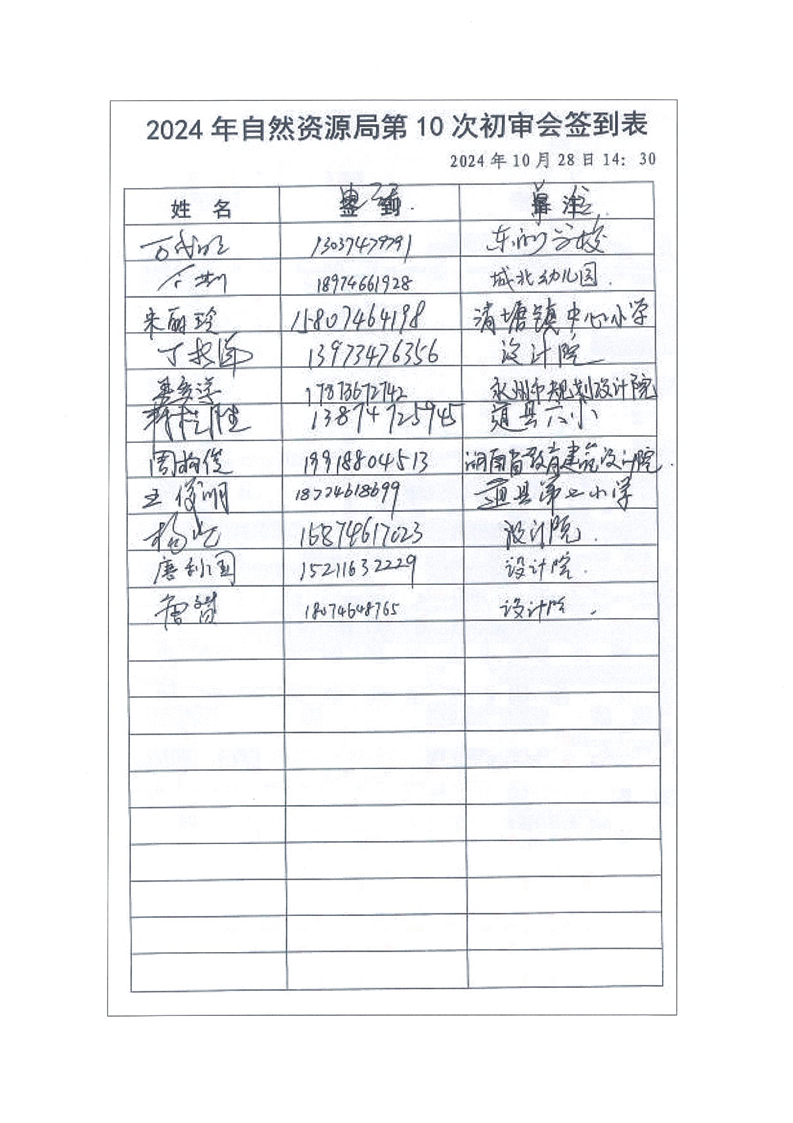 2024年自然资源局第10次初审会签到表
2024年10月28日14：30
姓 名 签 到 备 注
电话. 单位.
13037479791 东洲学校
18974661928 城北幼儿园.
朱丽玲 15807464198 清塘镇中心小学
13973476356 设计院
17873672742 永州市规划设计院
13874725945 道县六小
19918804513 湖南省教育建筑设计院.
王俊明 18774618699 道县第七小学
杨 15874617023 设计院.
唐利国 15211632229 设计院.
18074648765 设计院.